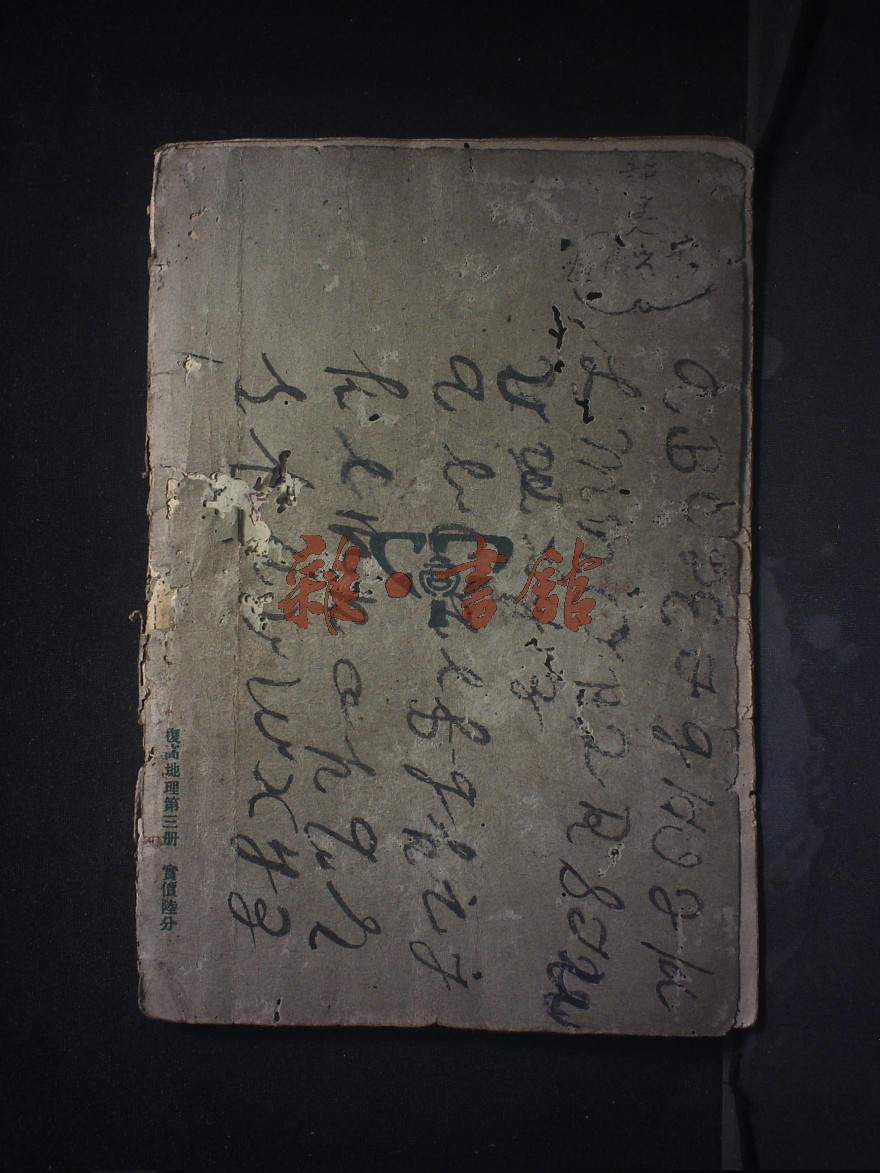 a B C D E F g H I J K
L M N O P Q R S T U
V W X Y Z
a b c d e f g h i j
k l m n o p q r
s t u v w x y z
復高地理第三册 實價陸分
雜·書館